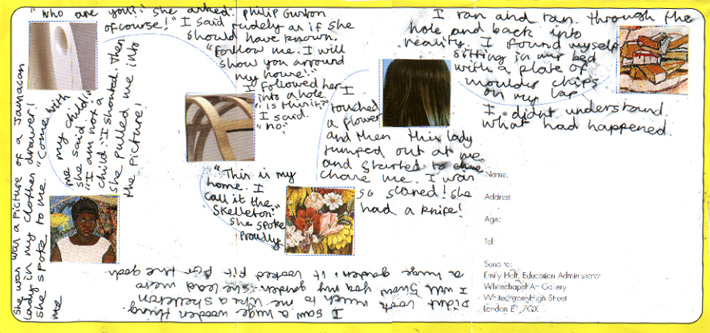 She was was a picture of a Jamaican
lady in my clothes drawer!
She spoke to me "Come with
me
my child"
she said
"I am not
child" I shouted. Then
she pulled me into
the picture!
"Who are you?" she asked. Philip Gurton
ofcourse!" I said rudely as if she
should have known.
"Follow me. I will
show you arround
my home!"
I followed her
into a hole
"is it?"
I said.
"no."
"This is my
home. I
call it the
Skelleton"
she spoke
Proudly
I saw a huge wooden thing.
Didnt look much to me like a skelleton
I will show you my garden" she said
a huge garden it looked fit for the gods.
I
touched
a flower
and then this lady
jumped out at me
and started to
chase me. I was
so scared! She
had a knife!
I ran and ran. through the
hole and back into
reality. I found myself
sitting in my bed
with a plate of
mouldy chips
on my lap
I didnt understand
what had happened.
Name:
Address
Age:
Tel:
Send to:
Emily Holt, Education Administrator
Whitechapel Art Gallery
Whitechapel High Street
London E1 7QX